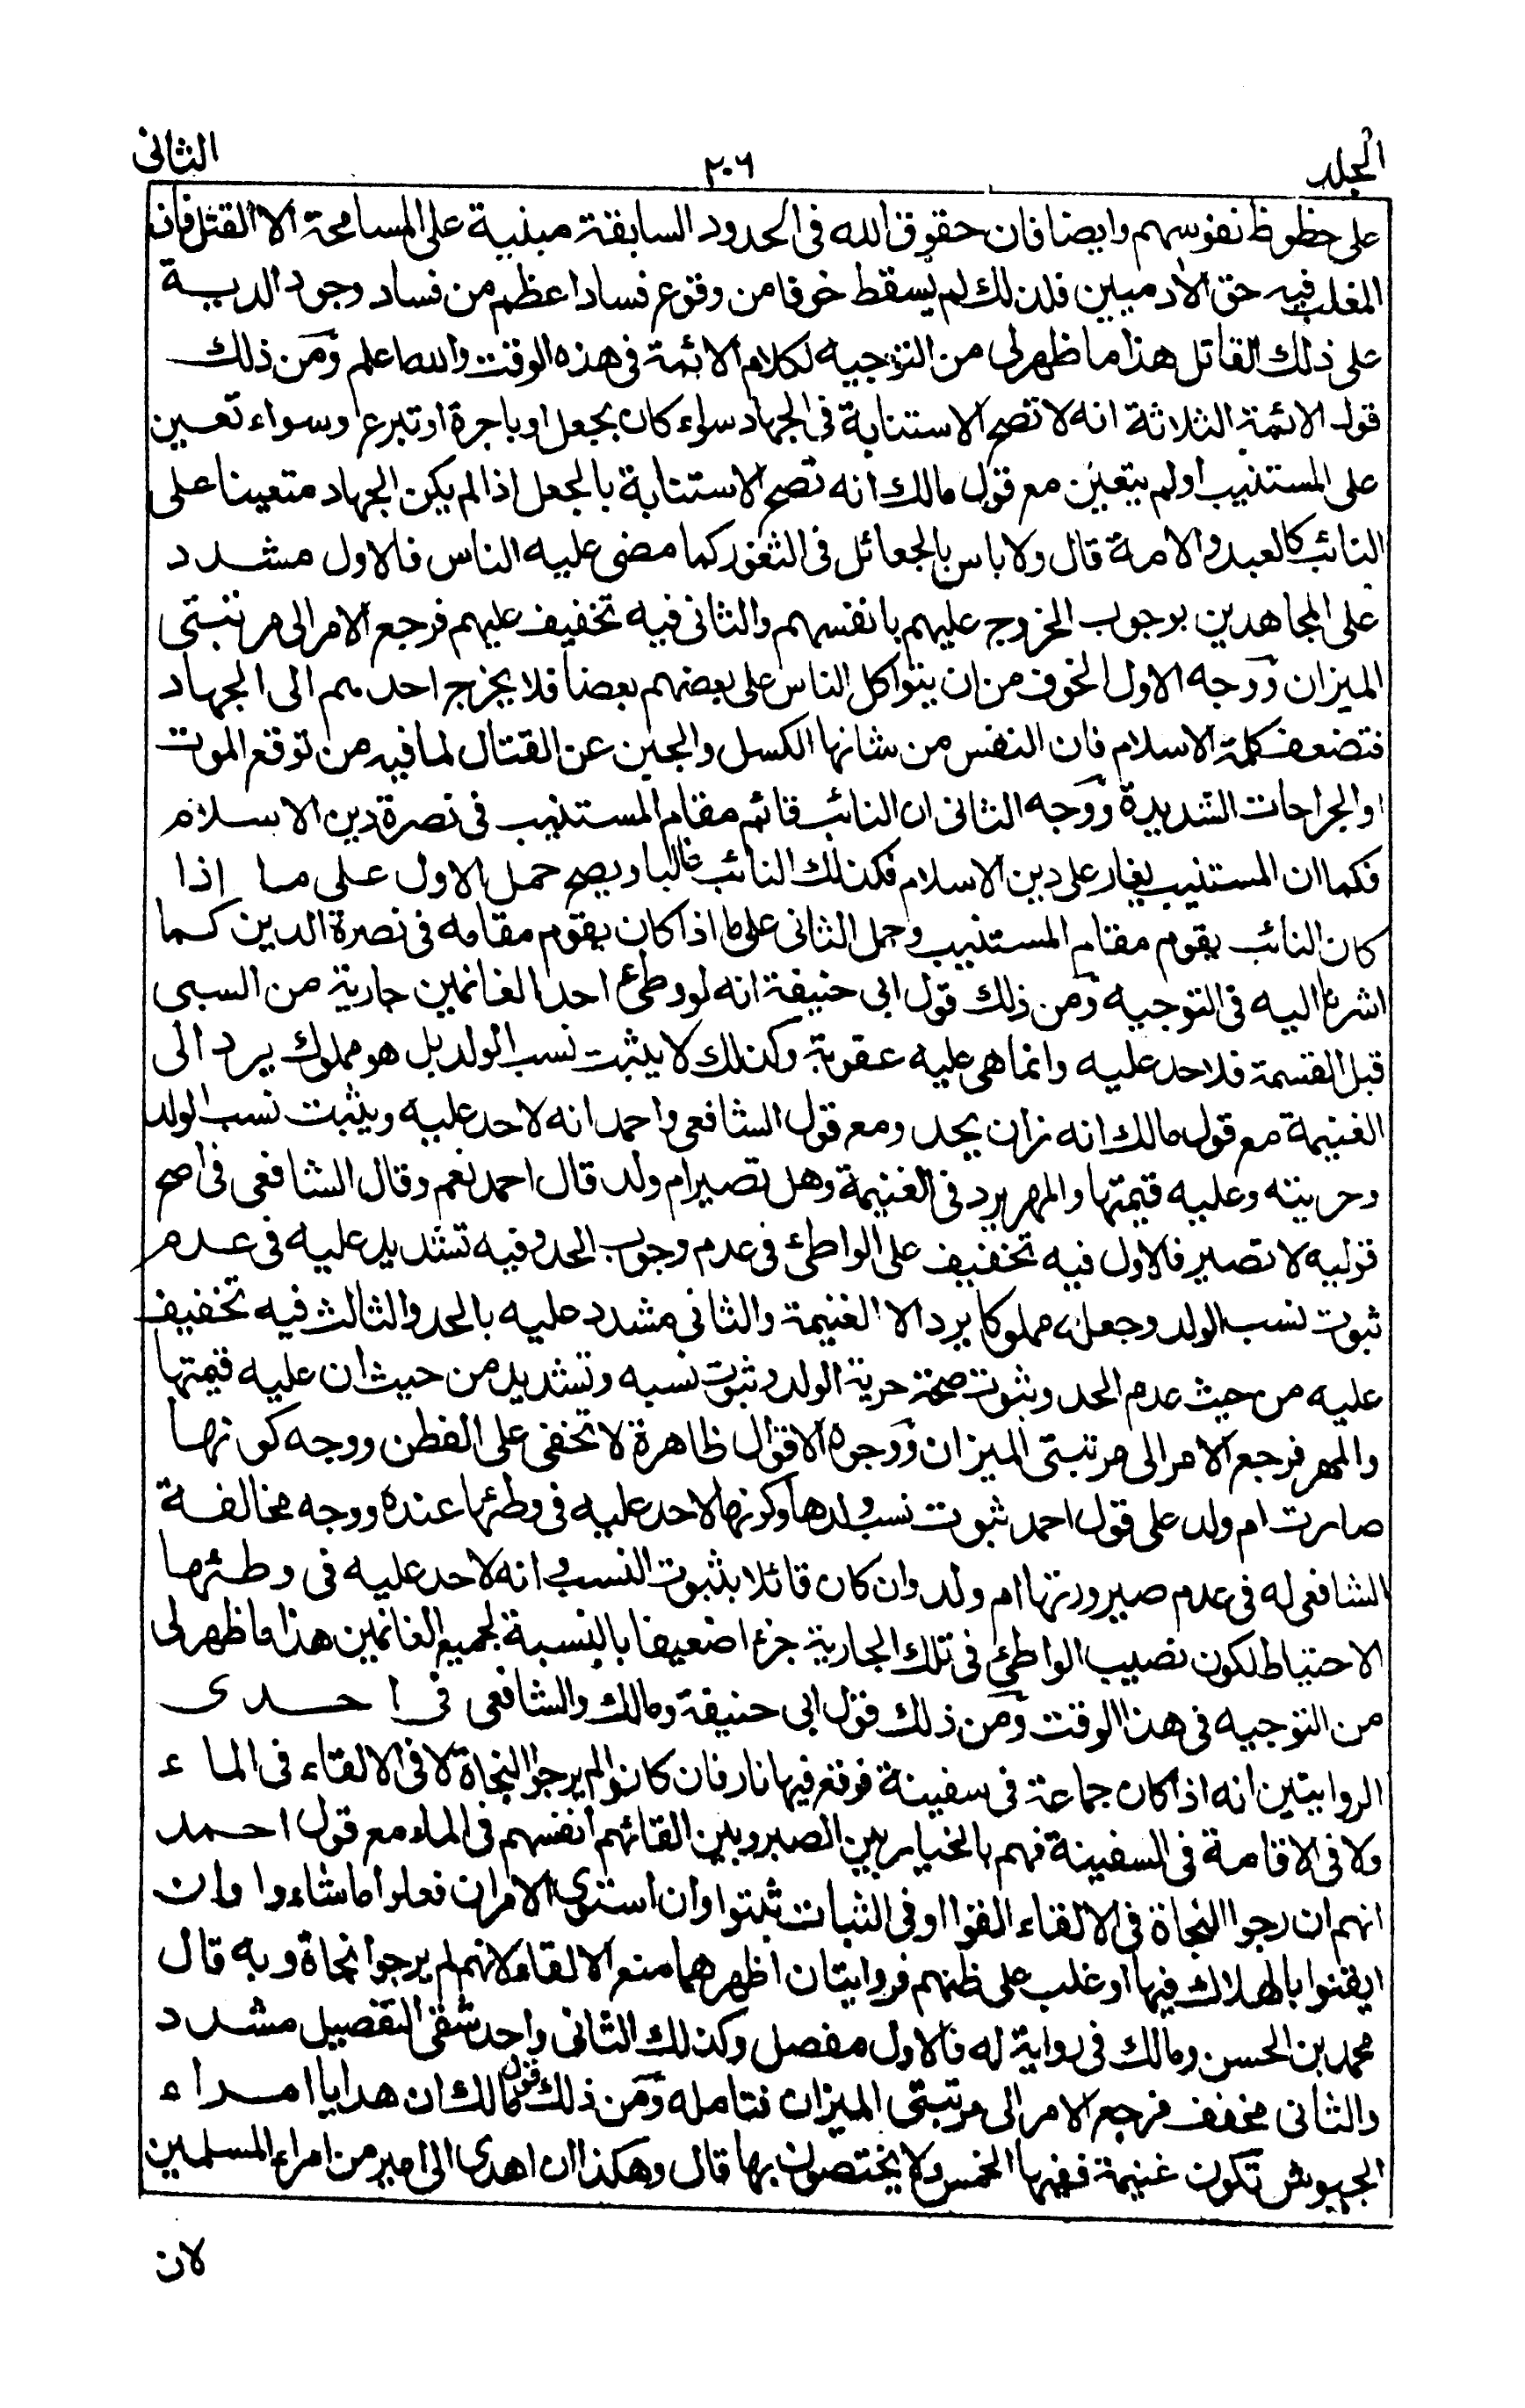 المجلد ٢٠٦ الثانى
على حظوظ نفوسهم وايضا فان حقوق الله فى الحدود السابقة مبنية على المسامحة الا القتل فانه
المغلب فيه حق الادميين فلذلك لم يسقط خوفا من وقوع فساد اعظم من فساد وجود الدية
على ذلك القاتل هذا ما ظهر لى من التوجيه لكلام الائمة فى هذه الوقت والله اعلم ومن ذلك
قول الائمة الثلاثة انه لا تصح الاستنابة فى الجهاد سواء كان بجعل او باجرة او تبرع وسواء تعين
على المستنيب او لم يتعين مع قول مالك انه تصح الاستنابة بالجعل اذا لم يكن الجهاد متعينا على
النائب كالعبد والامة قال ولا باس بالجعائل فى الثغور كما مضى عليه الناس فالاول مشدد
على المجاهدين بوجوب الخروج عليهم بانفسهم والثانى فيه تخفيف عليهم فرجع الامر الى مرتبتى
الميزان ووجه الاول الخوف من ان يتواكل الناس على بعضهم بعضا فلا يخرج احد منهم الى الجهاد
فتضعف كلمة الاسلام فان النفس من شانها الكسل والجبن عن القتال لما فيه من توقع الموت
او الجراحات الشديدة ووجه الثانى ان النائب قائم مقام المستنيب فى نصرة دين الاسلام
فكما ان المستنيب يغار على دين الاسلام فكذلك النائب غالبا ويصح حمل الاول على ما اذا
كان النائب يقوم مقام المستنيب وحمل الثانى على ما اذا كان يقوم مقامه فى نصرة الدين كما
اشرنا اليه فى التوجيه ومن ذلك قول ابى حنيفة انه لو وطئ احد الغانمين جارية من السبى
قبل القسمة فلا حد عليه وانما هى عليه عقوبة وكذلك لا يثبت نسب الولد بل هو مملوك يرد الى
الغنيمة مع قول مالك انه زان يحد ومع قول الشافعى واحمد انه لا حد عليه ويثبت نسب الولد
وحريته وعليه قيمتها والمهر يرد فى الغنيمة وهل تصير ام ولد قال احمد نعم وقال الشافعى فى اصح
قوليه لا تصير فالاول فيه تخفيف على الواطئ فى عدم وجوب الحد وفيه تشديد عليه فى عدم
ثبوت نسب الولد وجعله مملوكا يرد الا الغنيمة والثانى مشدد عليه بالحد والثالث فيه تخفيف
عليه من حيث عدم الحد وثبوت صحة حرية الولد وثبوت نسبه وتشديد من حيث ان عليه قيمتها
والمهر فرجع الامر الى مرتبتى الميزان ووجوه الاقوال ظاهرة لا تخفى على الفطن ووجه كونها
صارت ام ولد على قول احمد ثبوت نسب ولدها وكونها لاحد عليه فى وطئها عنده ووجه مخالفة
الشافعى له فى عدم صيرورتها ام ولد وان كان قائلا بثبوت النسب وانه لاحد عليه فى وطئها
الاحتياط لكون نصيب الواطئ فى تلك الجارية جزءا ضعيفا بالنسبة لجميع الغانمين هذا ما ظهر لى
من التوجيه فى هذا الوقت ومن ذلك قول ابى حنيفة ومالك والشافعى فى احدى
الروايتين انه اذا كان جماعة فى سفينة فوقع فيها نار فان كانوا لم يرجوا النجاة لا فى الالقاء فى الماء
ولا فى الاقامة فى السفينة فهم بالخيار بين الصبر وبين القائهم انفسهم فى الماء مع قول احمد
انهم ان رجوا النجاة فى الالقاء القوا او فى الثبات ثبتوا وان استوى الامران فعلوا ما شاءوا وان
ايقنوا بالهلاك فيها او غلب على ظنهم فروايتان اظهرهما منع الالقاء لانهم لم يرجوا نجاة وبه قال
محمد بن الحسن ومالك فى رواية له فالاول مفصل وكذلك الثانى واحد شقى التفصيل مشدد
والثانى مخفف فرجع الامر الى مرتبتى الميزان فتامله ومن ذلك قول مالك ان هدايا امراء
الجيوش تكون غنيمة ففيها الخمس ولا يختصون بها قال وهكذا ان اهدى الى امير من امراء المسلمين
لان